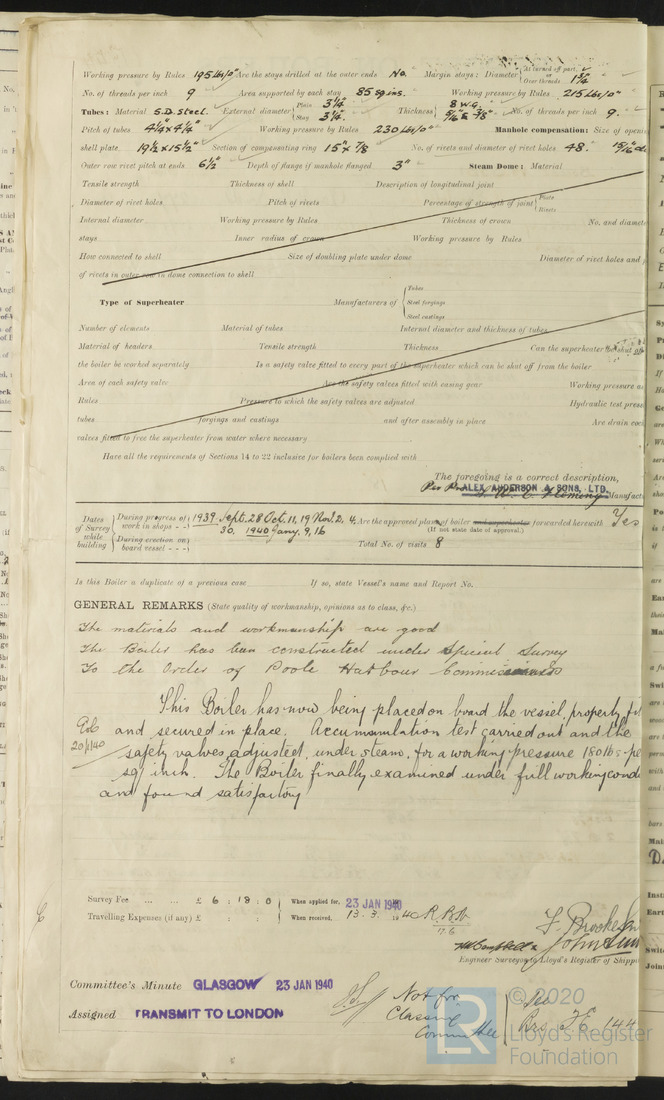 Working pressure by Rules 195 lbs/□" Are the stays drilled at the outer ends No. Margin stays: Diameter {At turned off part, Over threads 1¾"
No. of threads per inch 9 Area supported by each stay 85 sq ins. Working pressure by Rules 215 lbs/□"
Tubes: Material S.D. Steel. External diameter {Plain 3¼" Stay 3¼" Thickness {8 W.G. 5/16" & 3/8" No. of threads per inch 9.
Pitch of tubes 4¼ x 4¼" Working pressure by Rules 230 lbs/□" Manhole compensation: Size of openi
shell plate 19½ x 15½" Section of compensating ring 15" x 7/8 No. of rivets and diameter of rivet holes 48. 15/16"
Outer row rivet pitch at ends 6½" Depth of flange if manhole flanged 3" Steam Dome: Material
Tensile strength Thickness of shell Description of longitudinal joint
Diameter of rivet holes Pitch of rivets Percentage of strength of joint {Plate Rivets
Internal diameter Working pressure by Rules Thickness of crown No. and diamete
stays Inner radius of crown Working pressure by Rules
How connected to shell Size of doubling plate under dome Diameter of rivet holes and
of rivets in outer row in dome connection to shell
Type of Superheater Manufacturers of {Tubes Steel forgings Steel castings
Number of elements Material of tubes Internal diameter and thickness of tubes
Material of headers Tensile strength Thickness Can the superheater be shut off
the boiler be worked separately Is a safety valve fitted to every part of the superheater which can be shut off from the boiler
Area of each safety valve Are the safety valves fitted with easing gear Working pressure as
Rules Pressure to which the safety valves are adjusted Hydraulic test press
tubes forgings and castings and after assembly in place Are drain coc
valves fitted to free the superheater from water where necessary
Have all the requirements of Sections 14 to 22 inclusive for boilers been complied with
The foregoing is a correct description,
Per Pro ALEX. ANDERSON & SONS, LTD. Manufact
Dates of Survey while building {During progress of work in shops - - 1939 Sept. 28 Oct. 11, 19 Nov. 2, 4, Are the approved plans of boiler and superheater forwarded herewith Yes
(If not state date of approval.)
During erection on board vessel - - - 30, 1940 Jany. 9, 16 Total No. of visits 8
Is this Boiler a duplicate of a previous case If so, state Vessel's name and Report No.
GENERAL REMARKS (State quality of workmanship, opinions as to class, &c.)
The materials and workmanship are good
The Boiler has been constructed under Special Survey
To the Order of Poole Harbour Commissioners
This Boiler has now being placed on board the vessel, properly
and secured in place. Accumulation test carried out and the
20/2/40
safety valves adjusted, under steam, for a working pressure 150 lbs pe
sq inch. The Boiler finally examined under full working cond
and found satisfactory
Survey Fee ... ... £ 6 : 18 : 0 When applied for, 23 JAN 1940
Travelling Expenses (if any) £ : : When received, 13. 3. 1940
Engineer Surveyor to Lloyd's Register of Shipp
Committee's Minute GLASGOW 23 JAN 1940
Assigned TRANSMIT TO LONDON
Not for
Classing
Committee
144
LR
© 2020
Lloyd's Register
Foundation